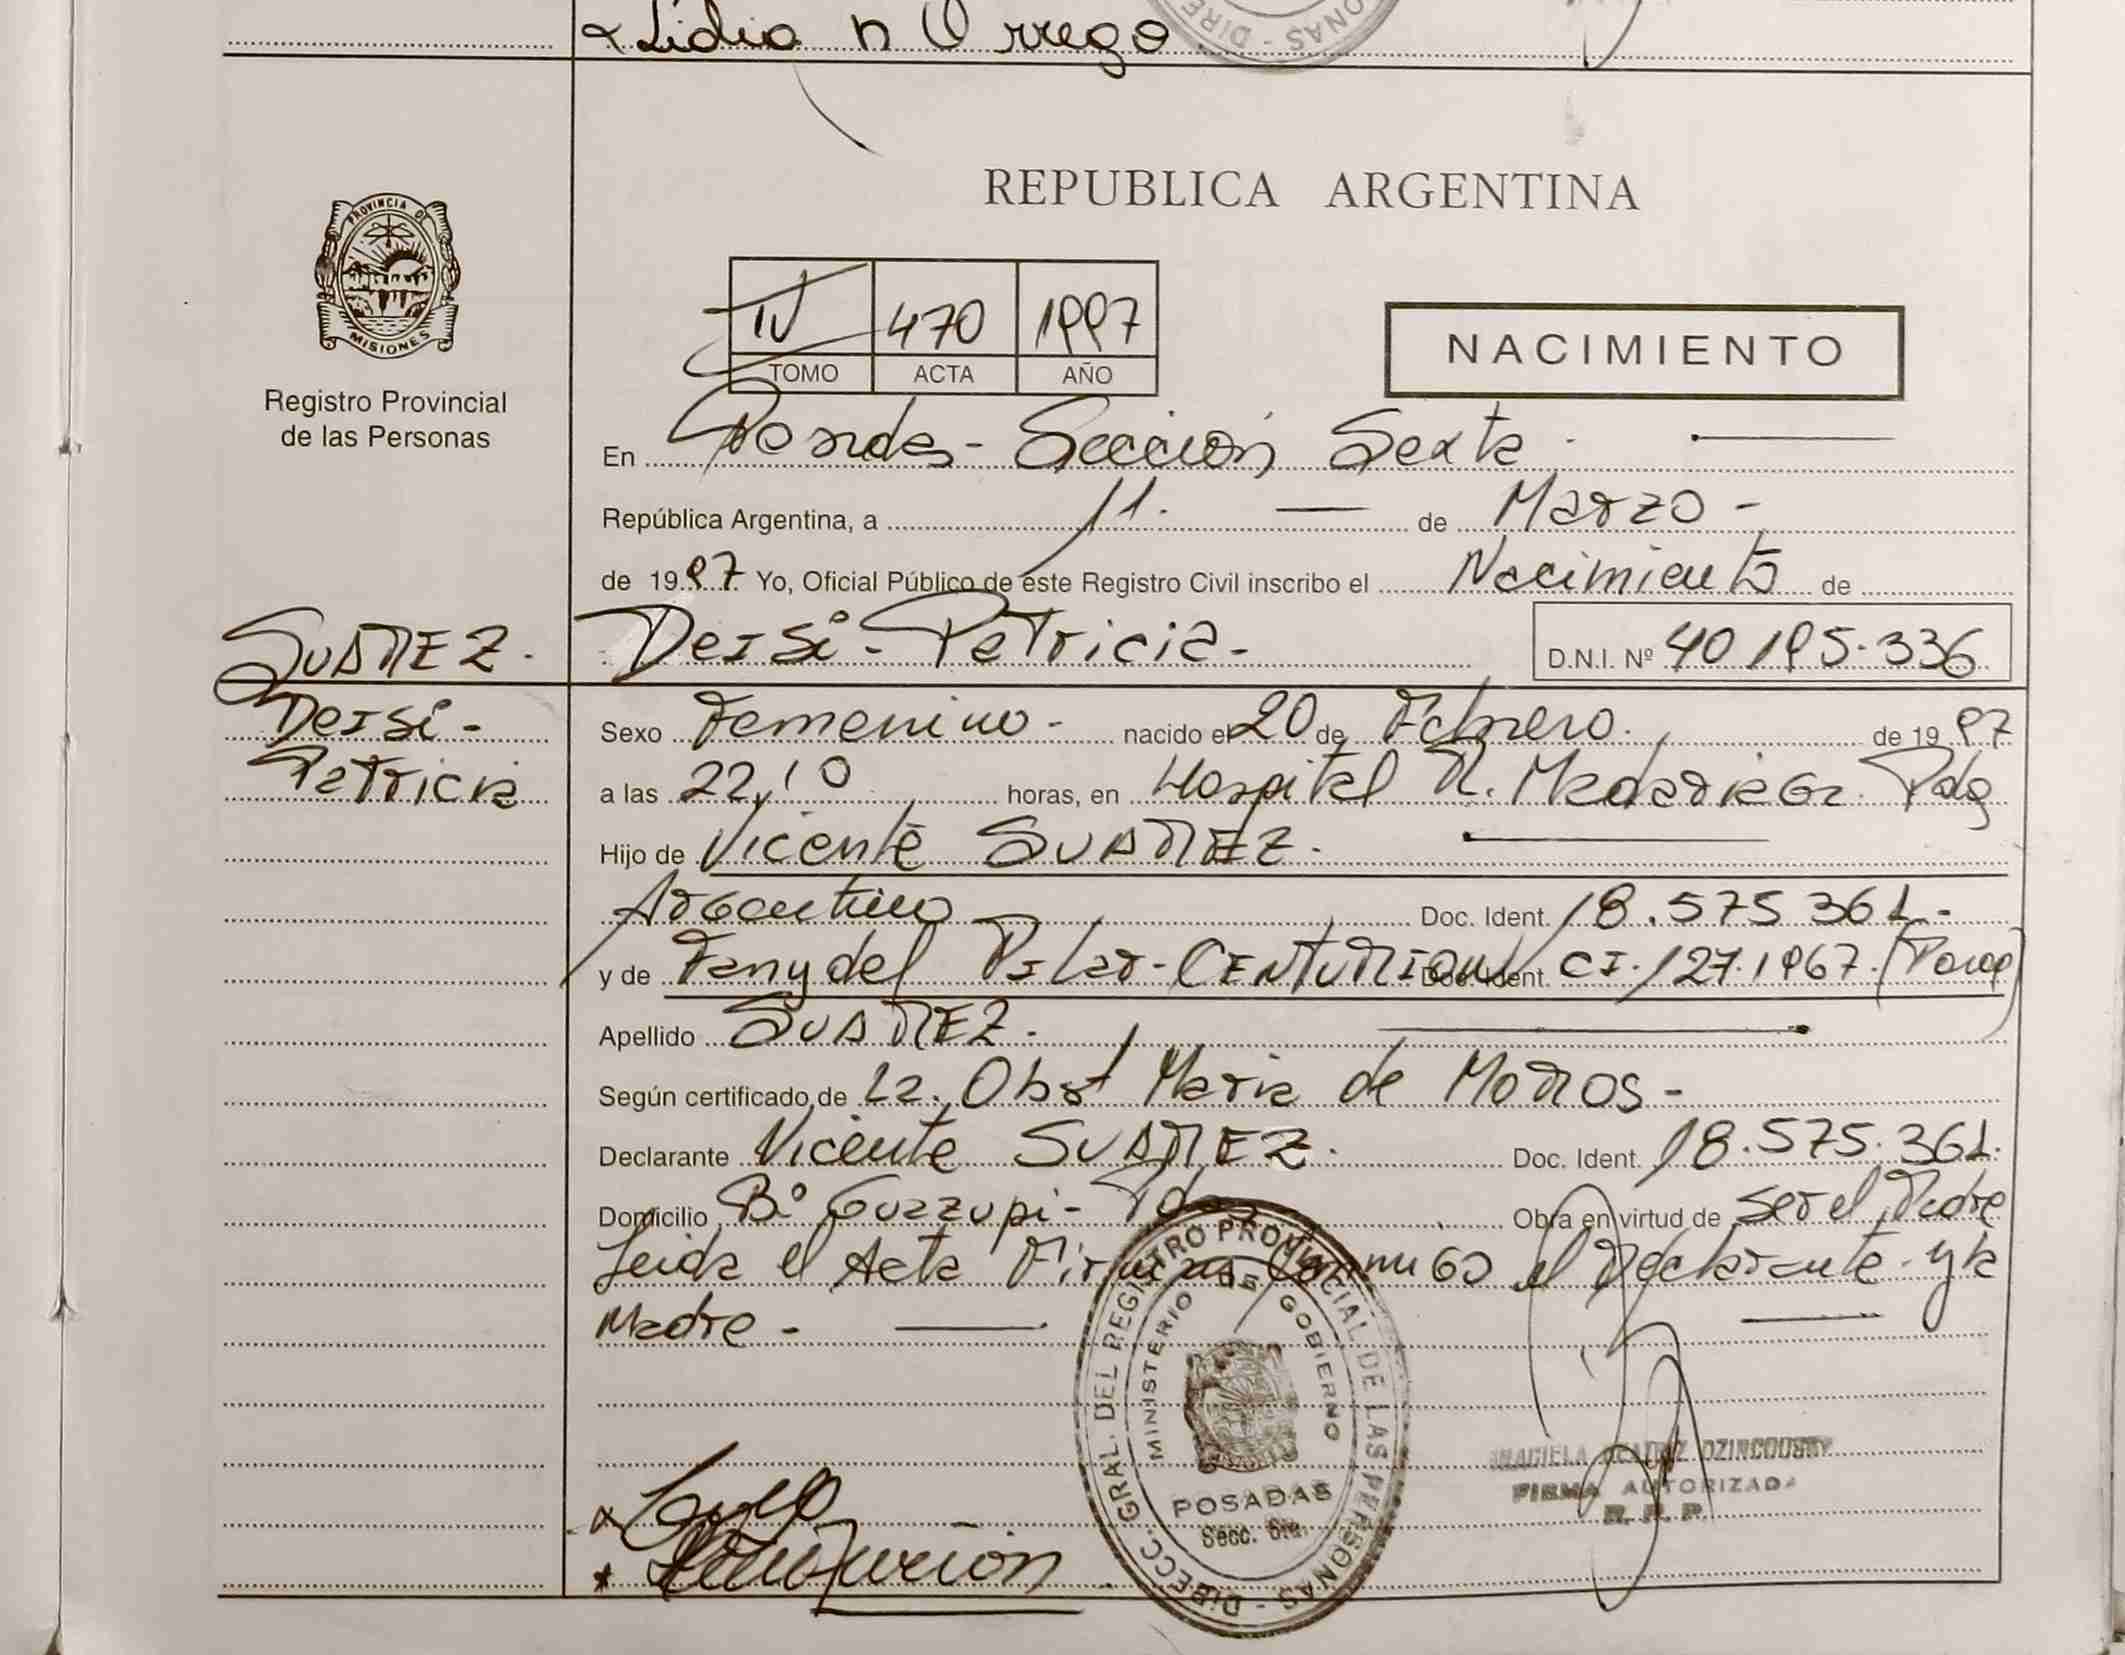 Lidia n Orrego
REPUBLICA ARGENTINA
PROVINCIA DE
MISIONES
Registro Provincial
de las Personas
IV 470 1997
TOMO ACTA AÑO
NACIMIENTO
En Posadas - Sección Sexta -
República Argentina, a 11. — de Marzo -
de 1997 Yo, Oficial Público de este Registro Civil inscribo el Nacimiento de
SUAREZ. Deisi - Patricia - D.N.I. Nº 40195.336
Deisi - Sexo Femenino - nacido el 20 de Febrero. de 1997
Patricia a las 22,10 horas, en Hospital R. Madariaga Pdas
Hijo de Vicente SUAREZ.
Argentino Doc. Ident. 18.575.361 -
y de Fany del Pilar - CENTURION Doc. Ident. CI. 127.1967.
Apellido SUAREZ.
Según certificado de La. Obst Maria de
Declarante Vicente SUAREZ. Doc. Ident. 18.575.361.
Domicilio Bº Pdas Obra en virtud de ser el Padre
Leida el Acta Firman Conmigo el Declarante - y la
Madre -
DIRECC. GRAL. DEL REGISTRO PROVINCIAL DE LAS PERSONAS -
MINISTERIO DE GOBIERNO
POSADAS
Secc. 6ta.
FIRMA AUTORIZADA
R. P. P.